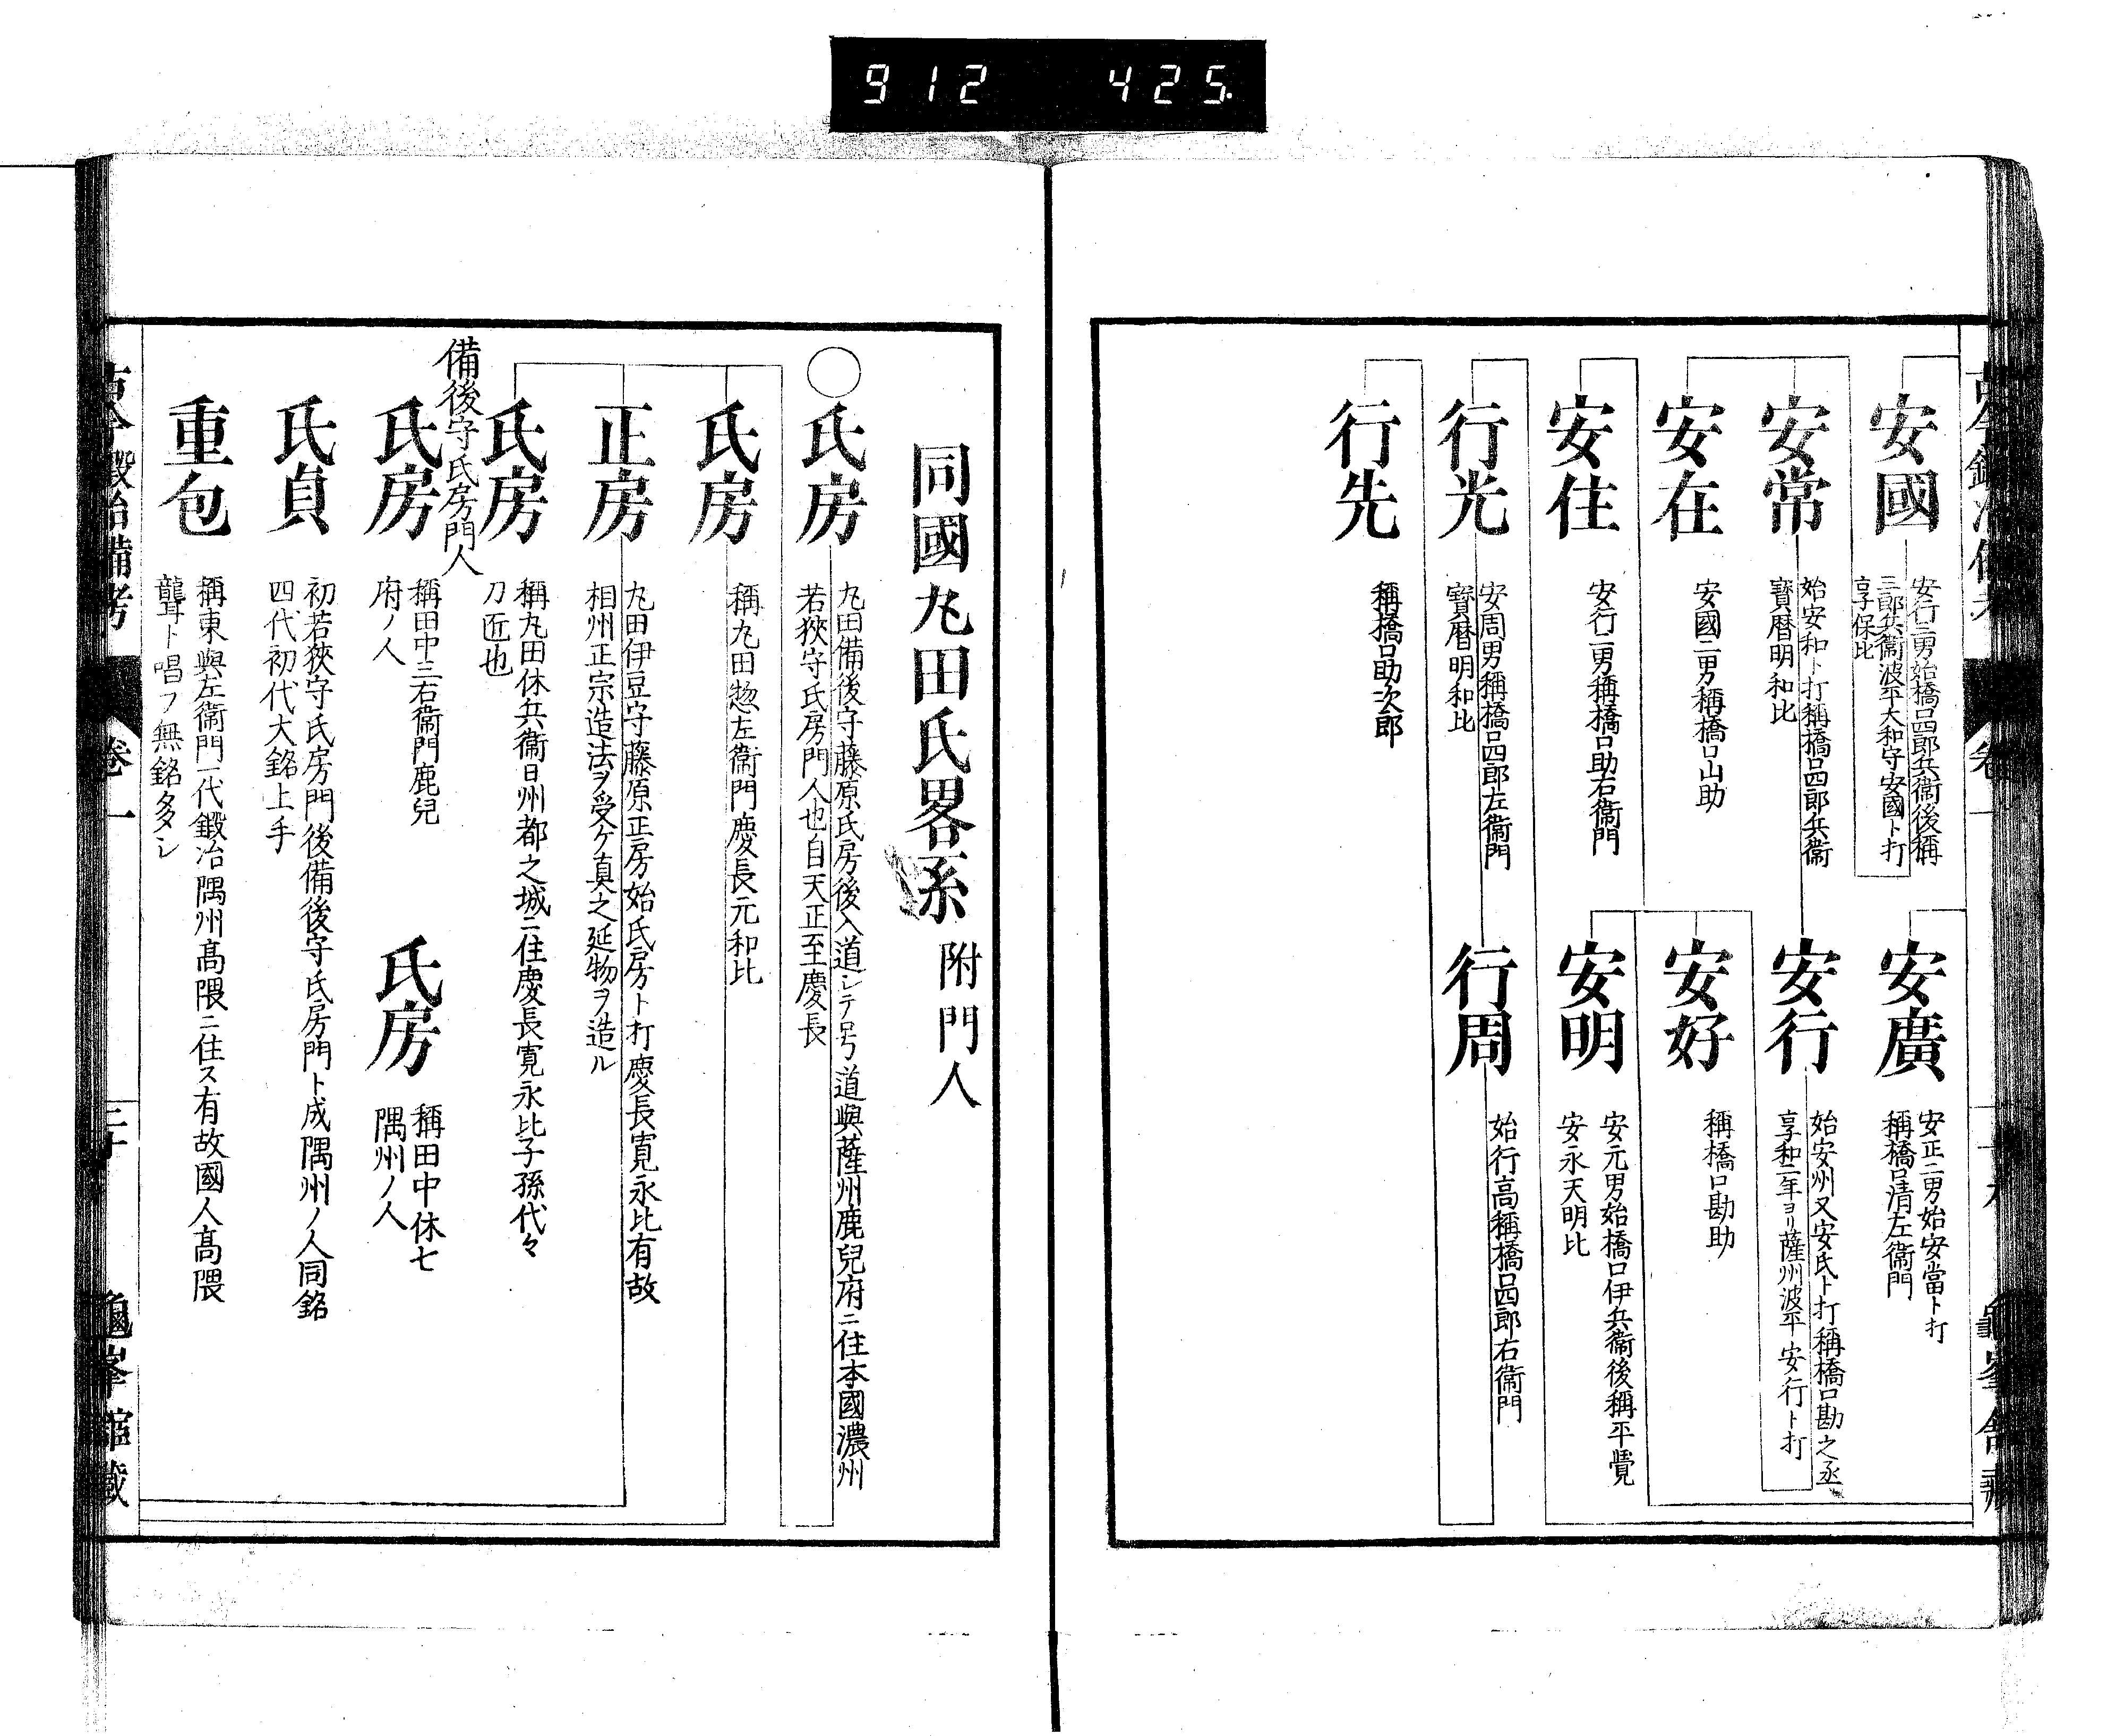 912 425
安國
安行二男始橋口四郎兵衞後稱
三郎兵衞波平大和守安國ト打
享保比
安廣
安正二男始安當ト打
稱橋口清左衞門
安常
始安和ト打稱橋口四郎兵衞
寳暦明和比
安行
始安州又安氏ト打稱橋口勘之丞
享和二年ヨリ薩州波平安行ト打
安在
安國二男稱橋口山助
安好
稱橋口勘助
安住
安行二男稱橋口助右衞門
安明
安元男始橋口伊兵衞後稱平覺
安永天明比
行光
安周男稱橋口四郎左衞門
寳暦明和比
行周
始行高稱橋口四郎右衞門
行先
稱橋口助次郎
同國丸田氏畧系 附門人
○氏房
丸田備後守藤原氏房後入道シテ号道與薩州鹿兒府ニ住本國濃州
若狹守氏房門人也自天正至慶長
氏房
稱丸田惣左衞門慶長元和比
正房
丸田伊豆守藤原正房始氏房ト打慶長寛永比有故
相州正宗造法ヲ受ケ真之延物ヲ造ル
氏房
稱丸田休兵衞日州都之城ニ住慶長寛永比子孫代々
刀匠也
備後守氏房門人
氏房
稱田中三右衞門鹿兒
府ノ人
氏房
稱田中休七
隅州ノ人
氏貞
初若狹守氏房門後備後守氏房門ト成隅州ノ人同銘
四代初代大銘上手
重包
稱東與左衞門一代鍛冶隅州髙隈ニ住ス有故國人髙隈
聾ト唱フ無銘多シ
古今鍛冶備考
卷一
二十
龜峯館藏